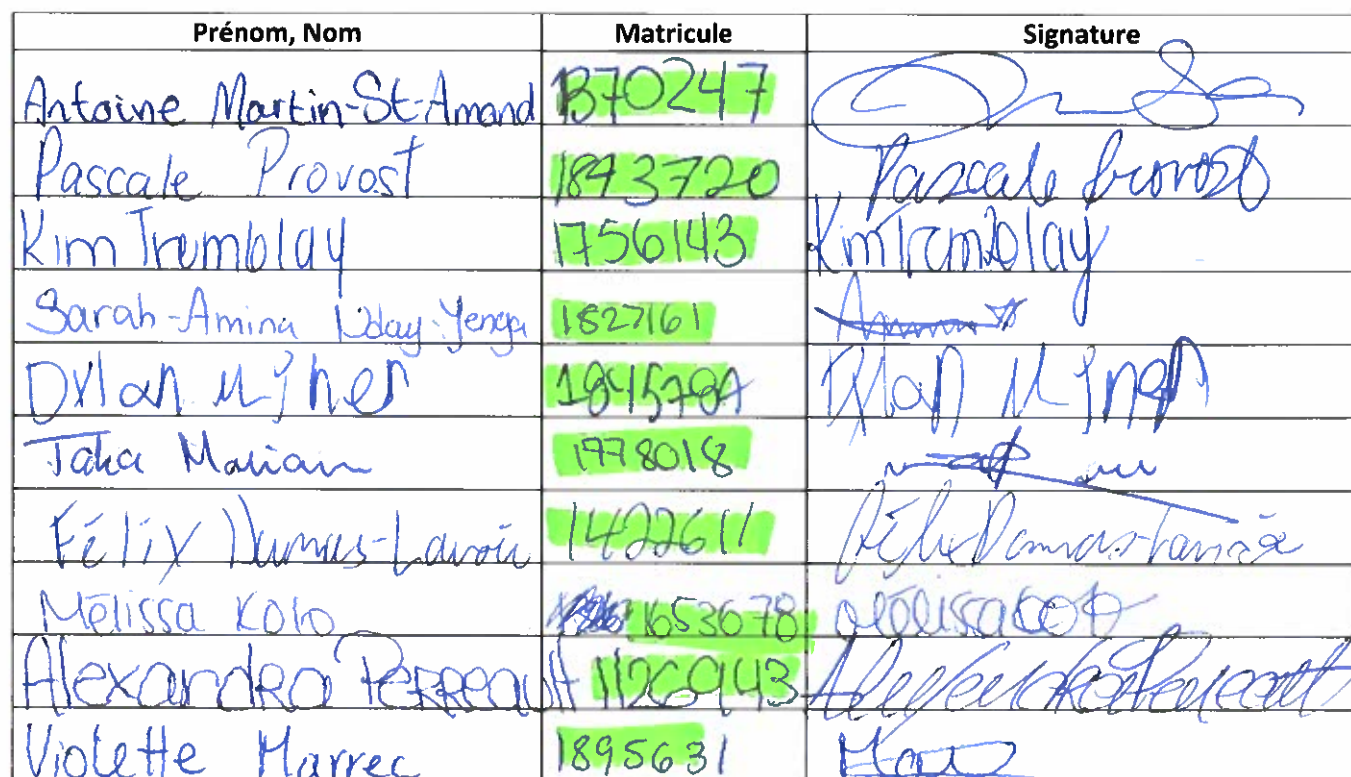 Prénom, Nom Matricule Signature
Antoine Martin-St-Amand 1370247
Pascale Provost 1843720 Pascale Provost
Kim Tremblay 1756143 Kim Tremblay
Sarah-Amina Uday-Yenga 1827161
Dylan 
Taha Mariam 1978018
Félix Dumas-Lavoie 1422611 Félix Dumas-Lavoie
Mélissa Kolo 1653678
Alexandra Perreault 1126943 Alexandra Perreault
Violette Marrec 1895631